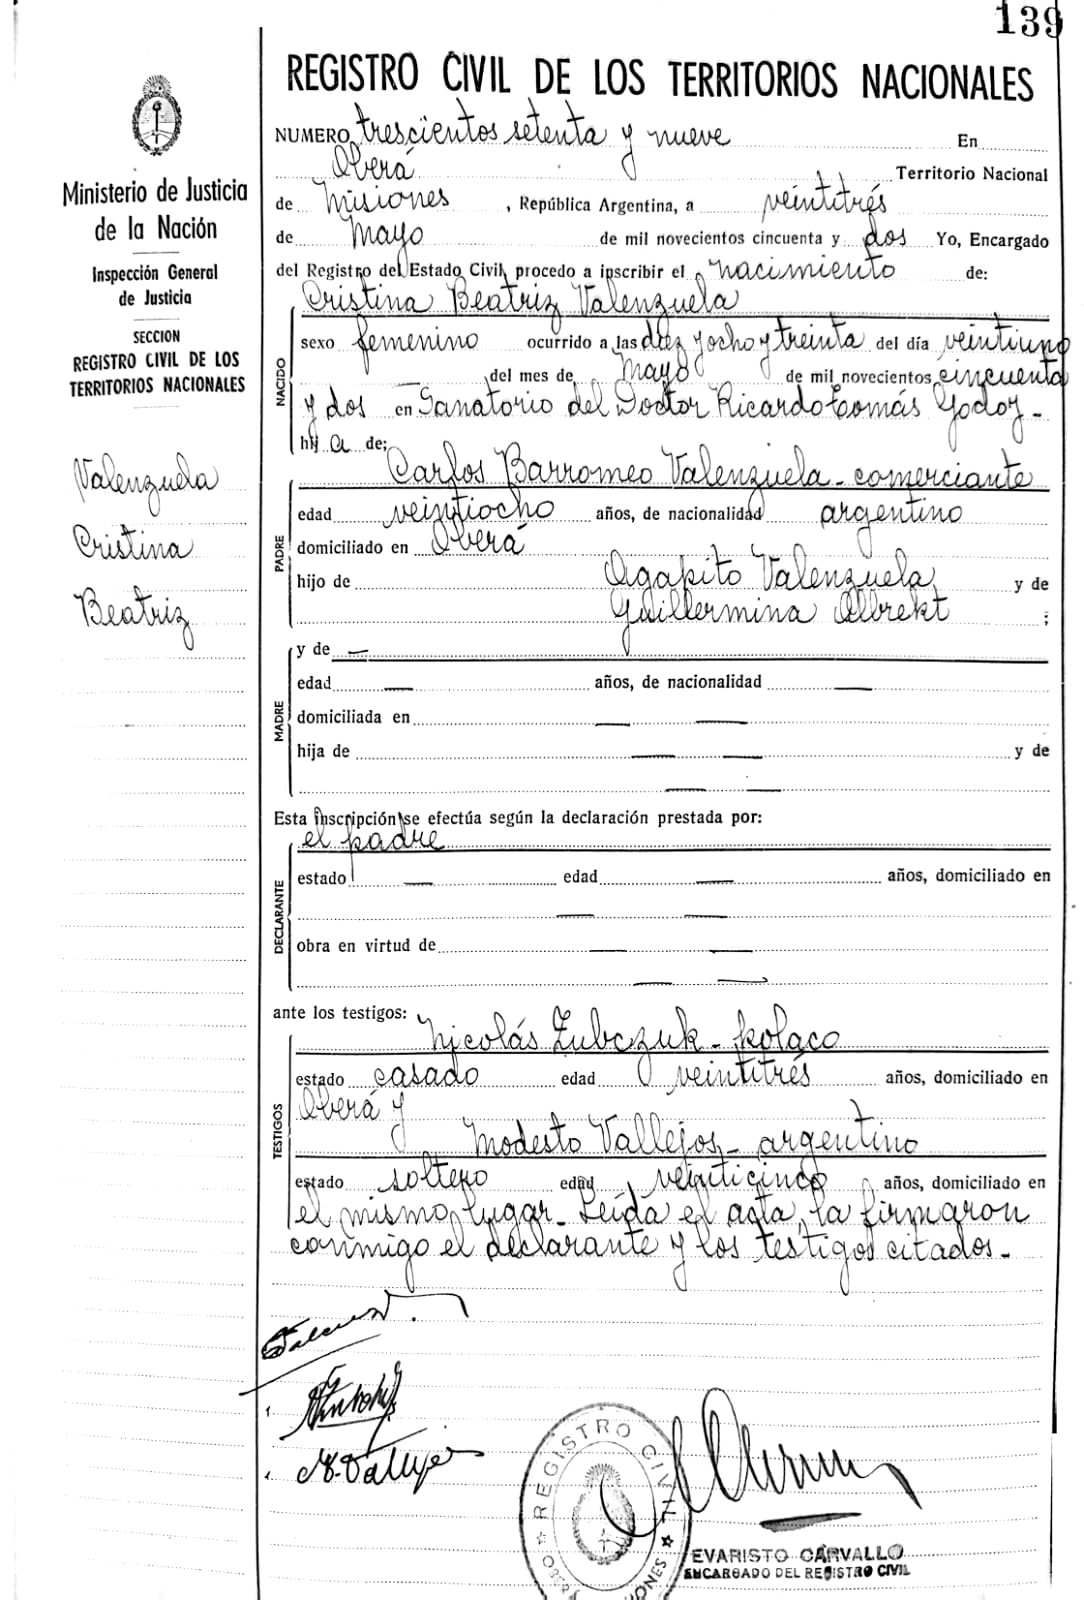 139
REGISTRO CIVIL DE LOS TERRITORIOS NACIONALES
Ministerio de Justicia
de la Nación
Inspección General
de Justicia
SECCION
REGISTRO CIVIL DE LOS
TERRITORIOS NACIONALES
Valenzuela
Cristina
Beatriz
NUMERO trescientos setenta y nueve En
Oberá Territorio Nacional
de Misiones, República Argentina, a veintitrés
de Mayo de mil novecientos cincuenta y dos Yo, Encargado
del Registro del Estado Civil, procedo a inscribir el nacimiento de:
NACIDO
Cristina Beatriz Valenzuela
sexo femenino ocurrido a las diez y ocho y treinta del día veintiuno
del mes de Mayo de mil novecientos cincuenta
y dos en Sanatorio del Doctor Ricardo Tomás Godoy -
hij a de;
PADRE
Carlos Barromeo Valenzuela - comerciante
edad veintiocho años, de nacionalidad argentino
domiciliado en Oberá
hijo de Agapito Valenzuela y de
Guillermina Albrekt ;
MADRE
y de —
edad — años, de nacionalidad —
domiciliada en — —
hija de — — y de
— —
Esta inscripción se efectúa según la declaración prestada por:
DECLARANTE
el padre
estado — edad — años, domiciliado en
— —
obra en virtud de — —
— —
ante los testigos:
TESTIGOS
Nicolás Zubczuk - polaco
estado casado edad veintitrés años, domiciliado en
Oberá y
Modesto Vallejos - argentino
estado soltero edad veinticinco años, domiciliado en
el mismo lugar - Leída el acta, la firmaron
conmigo el declarante y los testigos citados -
REGISTRO CIVIL
EVARISTO CARVALLO
ENCARGADO DEL REGISTRO CIVIL